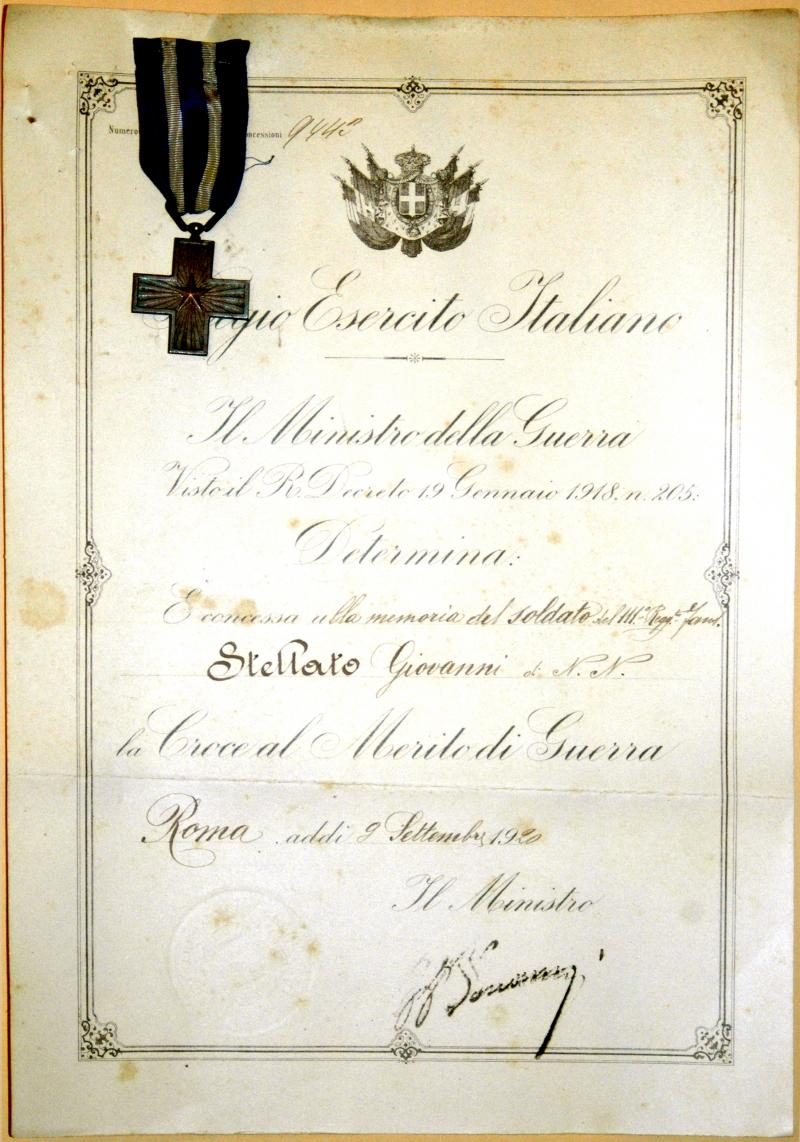 Numero concessioni 9443
Regio Esercito Italiano
Il Ministro della Guerra
Visto il R. Decreto 19 Gennaio 1918, n. 205:
Determina:
È concessa alla memoria del soldato del 111º Reggto Fant.
Stellato Giovanni di N. N.
la Croce al Merito di Guerra
Roma, addì 9 Settembre 1920
Il Ministro